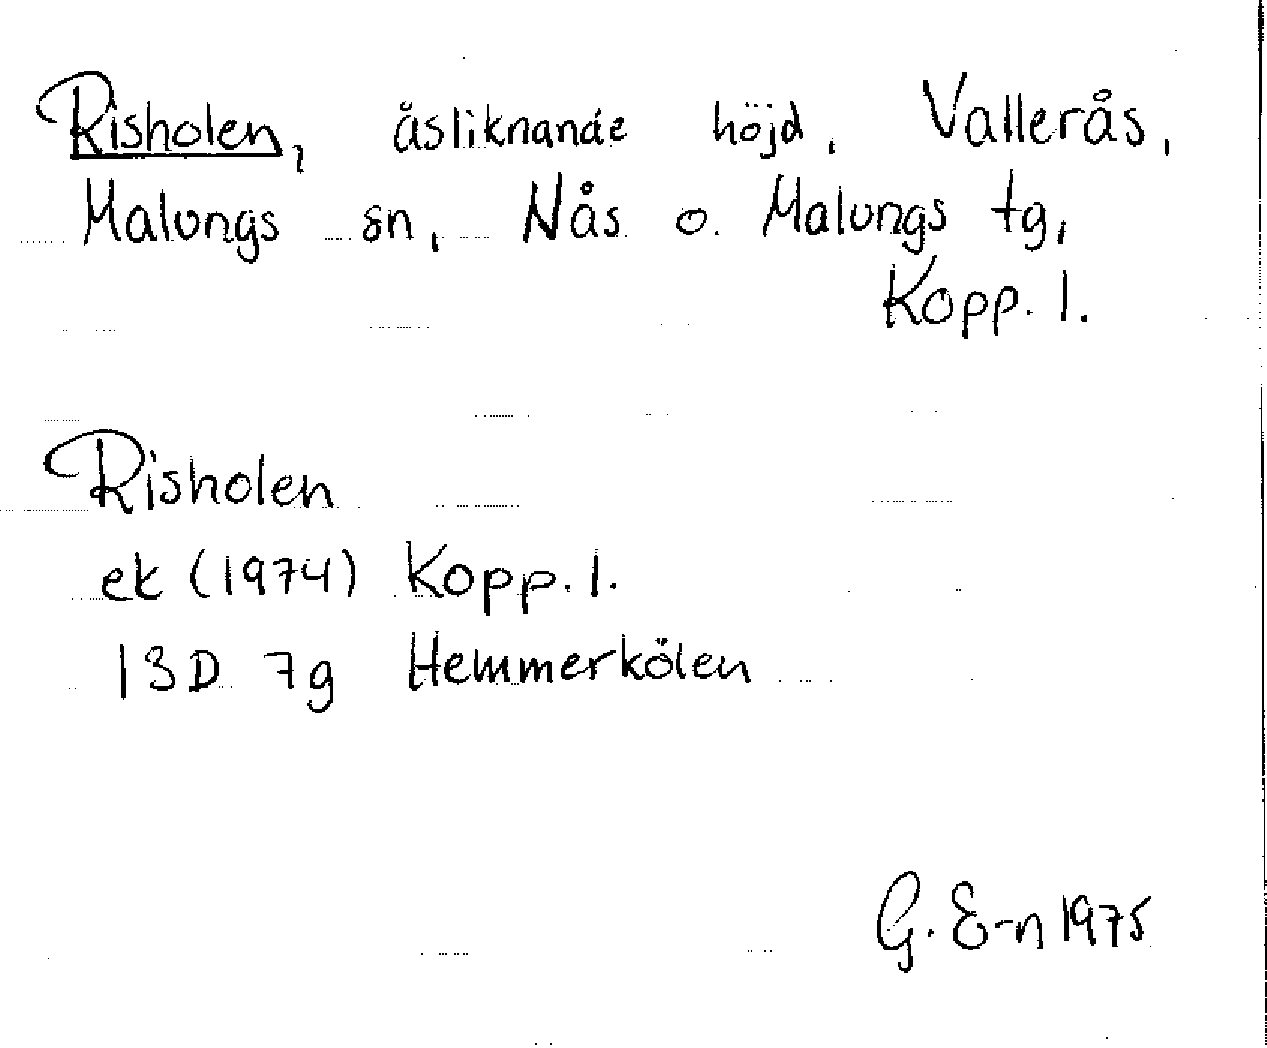 Risholen, åsliknande höjd, Vallerås,
Malungs sn, Nås o. Malungs tg,
Kopp. l.
Risholen
ek (1974) Kopp. l.
13D 7g Hemmerkölen
G. E-n 1975